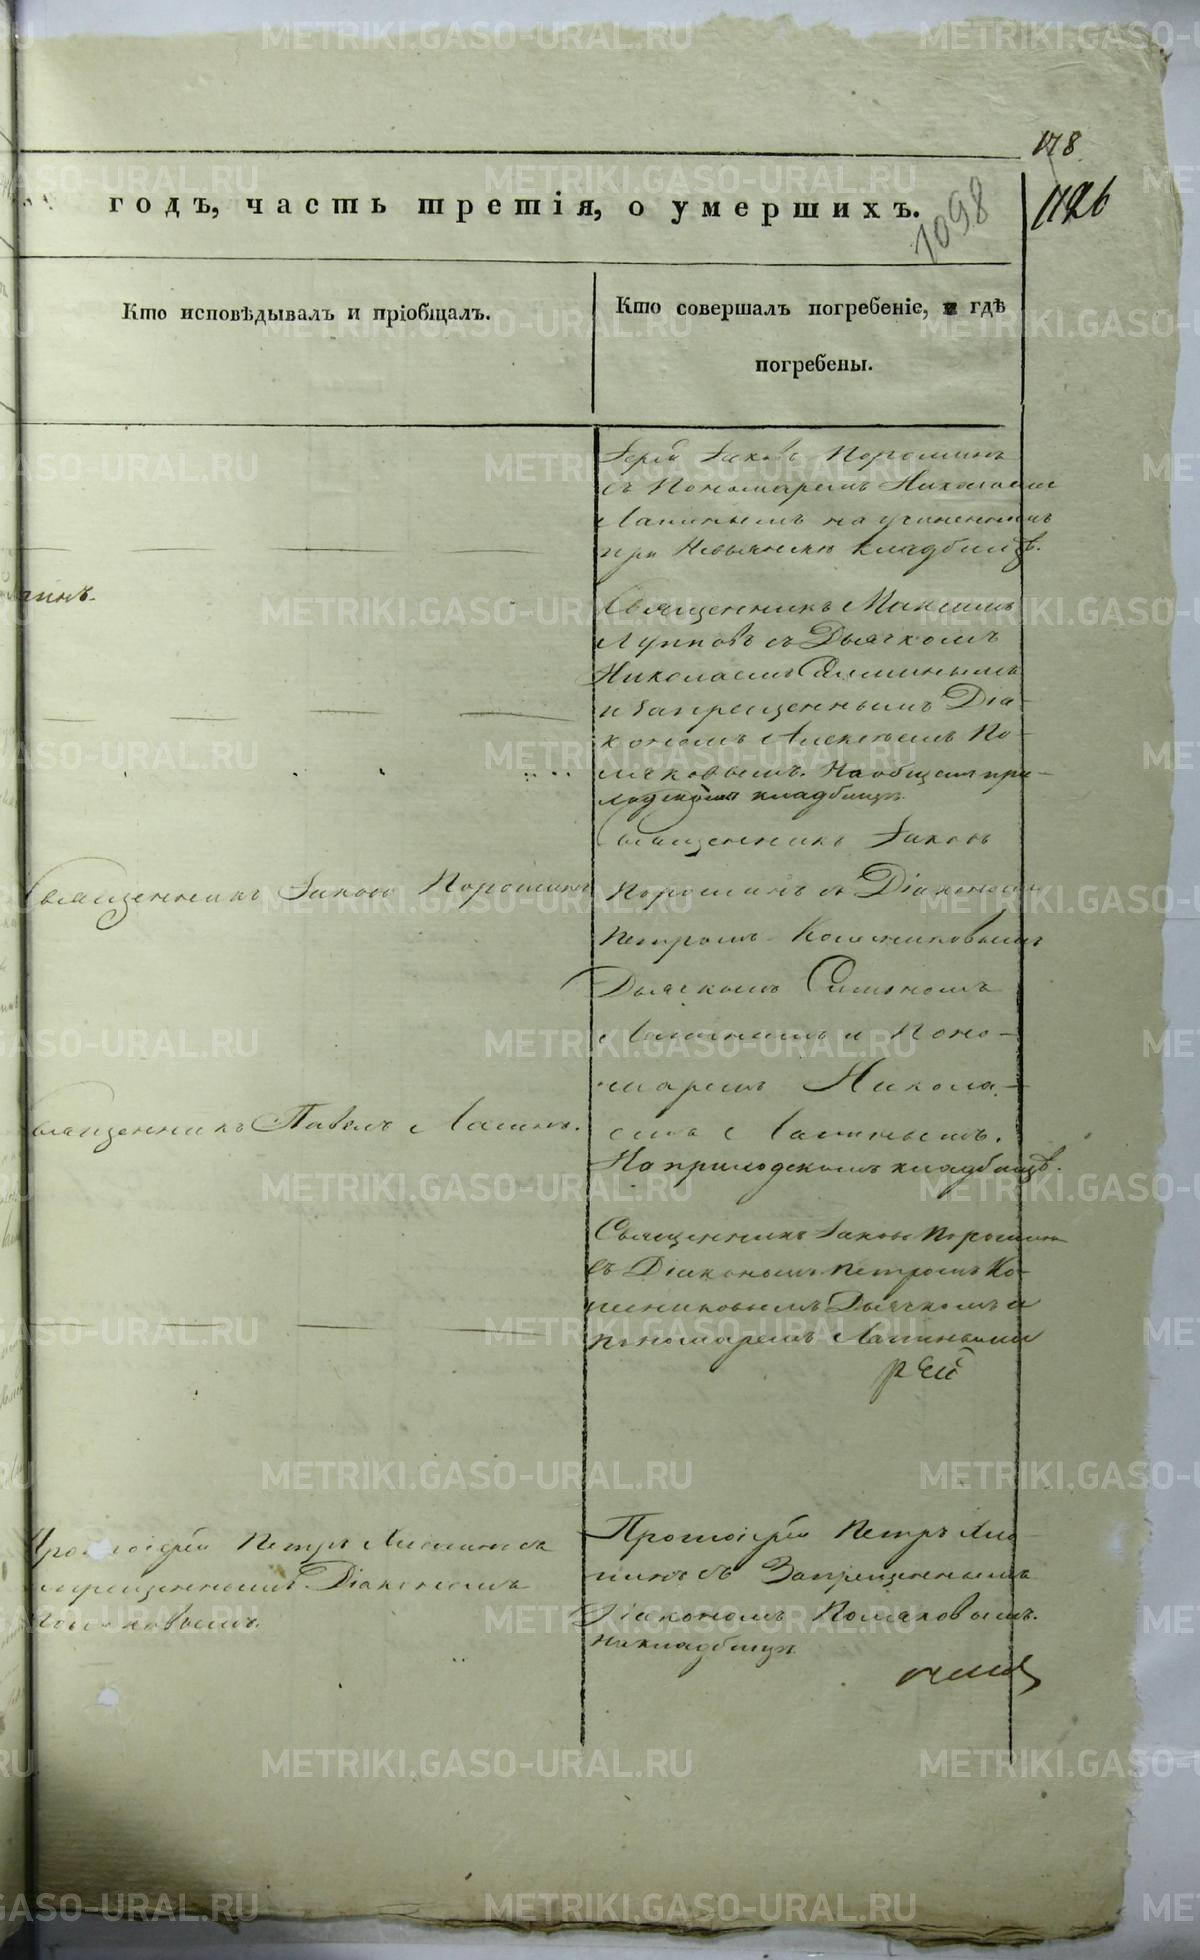 178
1126
годъ, часть третія, о умершихъ.
1098
Кто исповѣдывалъ и пріобщалъ.
Кто совершалъ погребеніе, и гдѣ
погребены.
Іерей Іаковъ Порошинъ
съ Пономаремъ Николаемъ
Лапинымъ на
при кладбищѣ.
Священникъ Максимъ
Лупповъ съ Дьячкомъ
Николаемъ
и Запрещеннымъ Діа-
кономъ Алексѣемъ По-
ляковымъ. На общемъ при-
ходскомъ кладбищѣ
Священникъ Іаковъ Порошинъ
Священникъ Іаковъ
Порошинъ съ Діакономъ
Петромъ
Дьячкомъ Симономъ
Лапинымъ и Поно-
маремъ Никола-
емъ Лапинымъ.
На приходскомъ кладбищѣ.
Священникъ Павелъ Лапинъ.
Священникъ Іаковъ Порошинъ
съ Діакономъ Петромъ
Дьячкомъ и
пономаремъ Лапиными
Протоіерей Петръ съ
Запрещеннымъ Діакономъ
Поляковымъ.
Протоіерей Петръ
съ Запрещеннымъ
Діакономъ Поляковымъ.
на кладбищѣ
METRIKI.GASO-URAL.RU